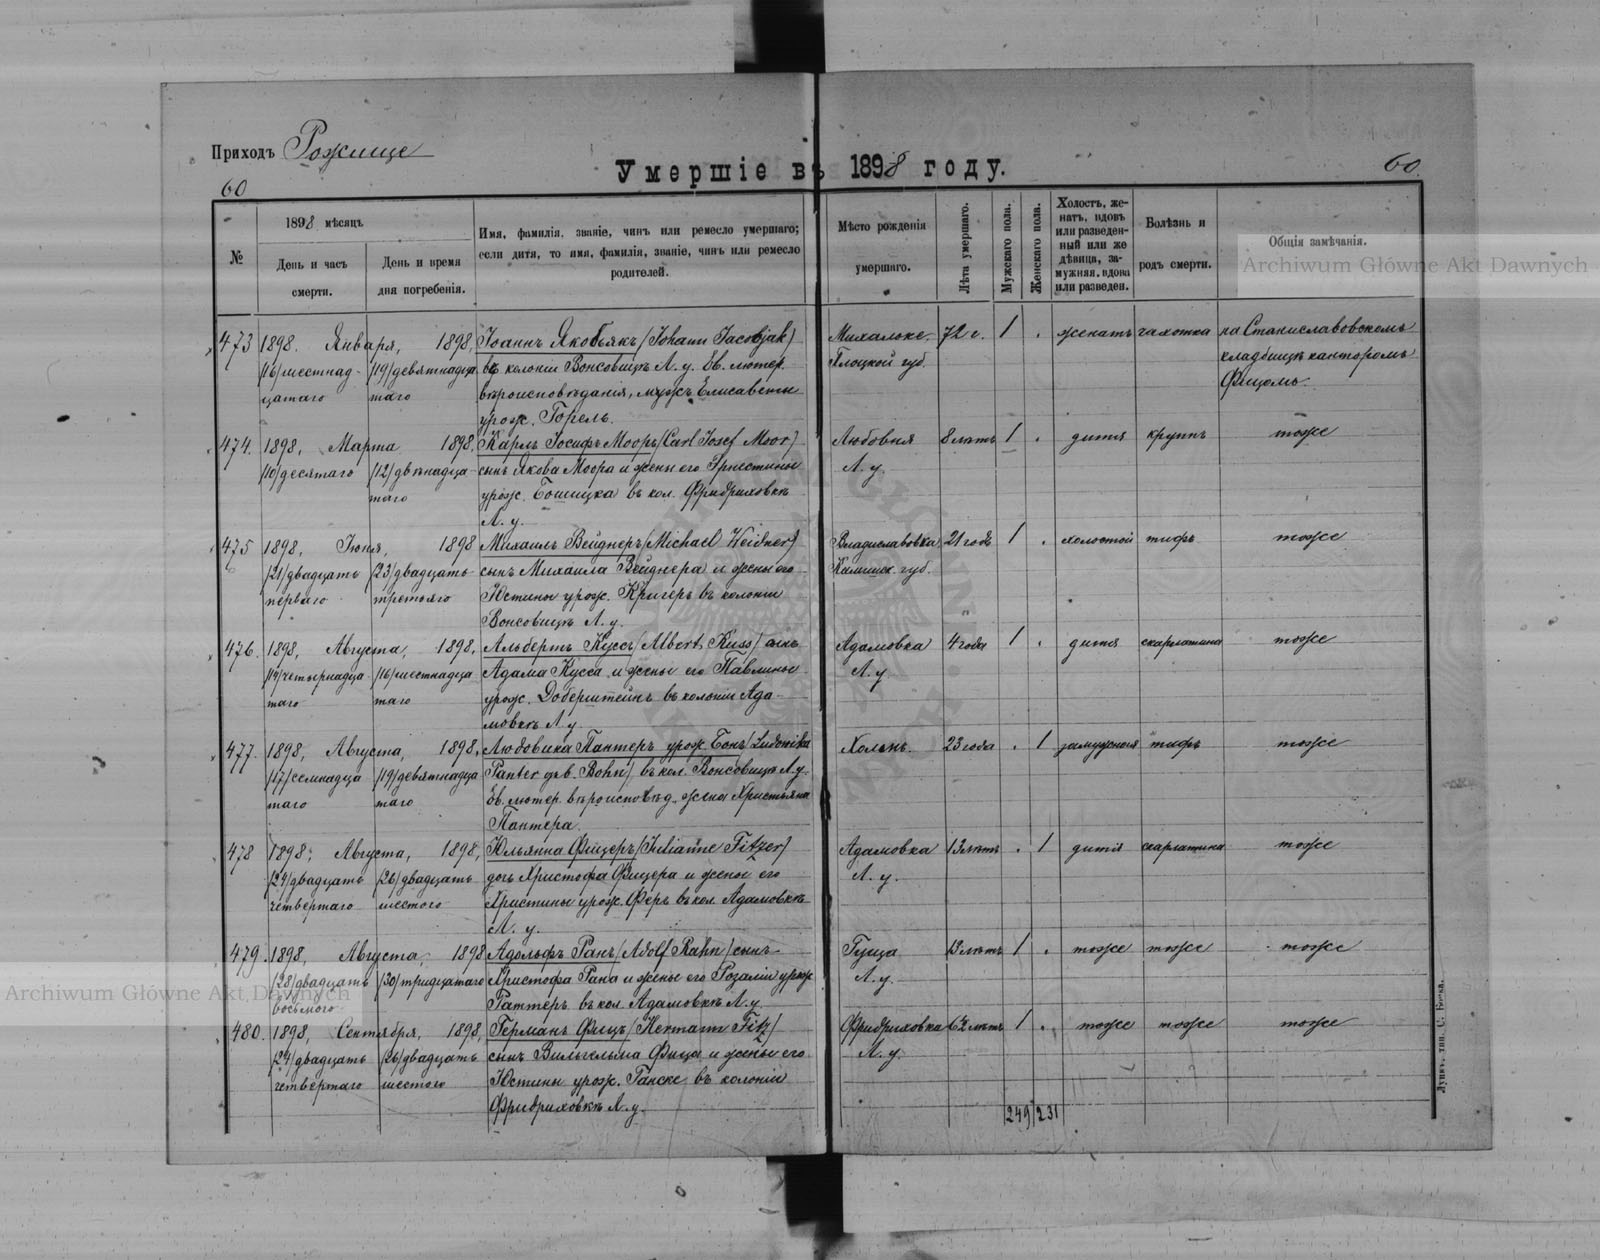 Приходъ Рожище
Умершіе въ 1898 году.
60
60.
№
1898 мѣсяцъ
День и часъ смерти.
День и время дня погребенія.
Имя, фамилія, званіе, чинъ или ремесло умершаго;
если дитя, то имя, фамилія, званіе, чинъ или ремесло
родителей.
Мѣсто рожденія
умершаго.
Лѣта умершаго.
Мужскаго пола.
Женскаго пола.
Холостъ, же-
натъ, вдовъ
или разведен-
ный или же
дѣвица, за-
мужняя, вдова
или разведен.
Болѣзнь и
родъ смерти.
Общія замѣчанія.
Archiwum Główne Akt Dawnych
473 1898. Января, 1898, Іоаннъ Якобьякъ (Johann Jacobjak) Михалоке, 72 г. 1 . женатъ чахотка на Станиславовскомъ
(16) шестнад- (19) девятнадца въ колоніи Вонсовичъ Л. у. Ев. лютер. Плоцкой губ. кладбищѣ канторомъ
цатаго таго вѣроисповѣданія, мужъ Елисаветы Фицомъ.
урож. Горель.
474. 1898, Марта 1898, Карлъ Іосифъ Мооръ (Carl Josef Moor) Любовня 8 лѣтъ 1 . дитя крупъ тоже
(10) десятаго (12) двѣнадца- сынъ Якова Моора и жены его Христины Л. у.
таго урож. Бошицка въ кол. Фридриховкѣ
Л. у.
475 1898, Іюня, 1898 Михаилъ Вейднеръ (Michael Weidner) Владиславовка 21 годъ 1 . холостой тифъ тоже
(21) двадцать (23) двадцать- сынъ Михаила Вейднера и жены его Калишск. губ.
перваго третьяго Юстины урож. Кригеръ въ колоніи
Вонсовичъ Л. у.
476. 1898, Августа, 1898, Альбертъ Куссъ (Albert Kuss) сынъ Адамовка 4 года 1 . дитя скарлатина тоже
(14) четырнадца (16) шестнадца Адама Кусса и жены его Павлины Л. у
таго таго урож. Доберштейнъ въ колоніи Ада-
мовкѣ Л. у
477. 1898, Августа, 1898, Людовика Пантеръ урож. Бонъ (Ludowika Хольнъ. 23 года . 1 замужняя тифъ тоже
(17) семнадца (19) девятнадца Panter дѣв. Bohn) въ кол. Вонсовичъ Л. у.
таго таго Ев. лютер. вѣроисповѣд. жена Христьяна
Пантера.
478 1898, Августа, 1898, Юльянна Фицеръ (Julianne Fitzer) Адамовка 13 лѣтъ . 1 дитя скарлатина тоже
(24) двадцать (26) двадцать дочь Христофа Фицера и жены его Л. у.
четвертаго шестого Христины урож. Феръ въ кол. Адамовкѣ
Л. у.
479 1898, Августа, 1898 Адольфъ Ранъ (Adolf Rahn) сынъ Гуща 13 лѣтъ 1 . тоже тоже тоже
(28) двадцать (30) тридцатаго Христофа Рана и жены его Розаліи урож Л. у.
восьмого Раттеръ въ кол. Адамовкѣ Л. у
480. 1898, Сентября, 1898, Германъ Фицъ (Hermann Fitz) Фридриховка 6½ лѣтъ 1 . тоже тоже тоже
(24) двадцать (26) двадцать сынъ Вильгельма Фица и жены его Л. у.
четвертаго шестого Юстины урож. Ганске въ колоніи
Фридриховкѣ Л. у.
249 231
Archiwum Główne Akt Dawnych
Луцкъ, тип. С. Бокса.